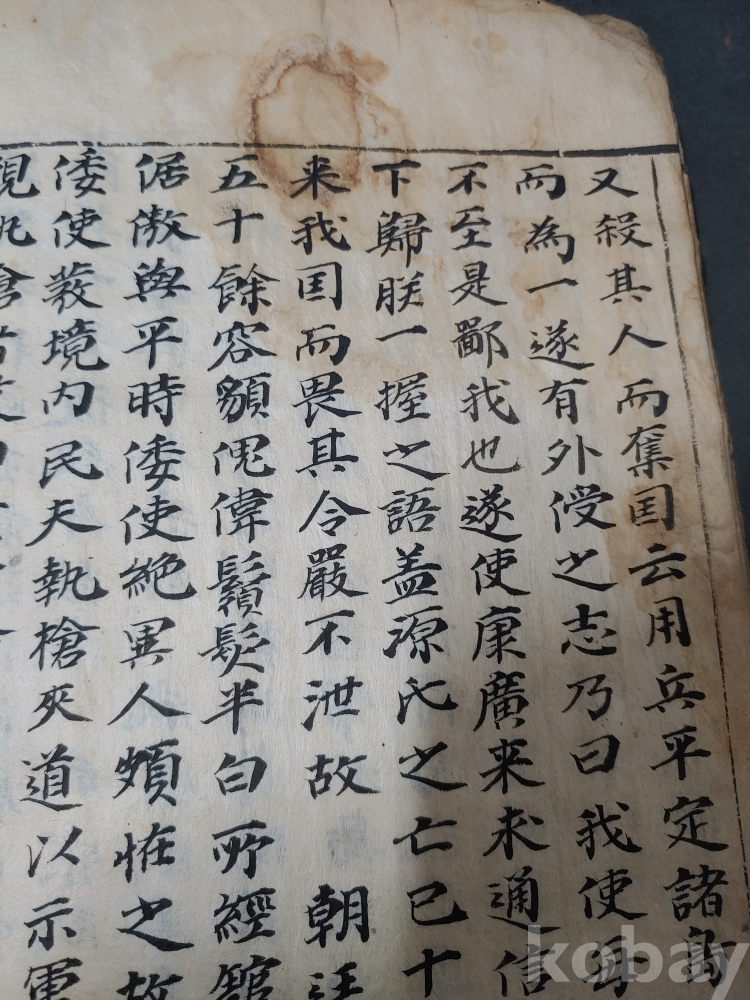 又殺其人而奪囯云用兵平定諸島
而為一遂有外侵之志乃曰我使每
不至是鄙我也遂使康廣来求通信
下歸朕一握之語盖源氏之亡已十
来我囯而畏其令嚴不泄故 朝廷
五十餘容貌傀偉鬚髮半白所經舘
倨傲與平時倭使絶異人頗恠之故
倭使䓲境内民夫執槍夾道以示軍
視執槍者笑曰
kobay